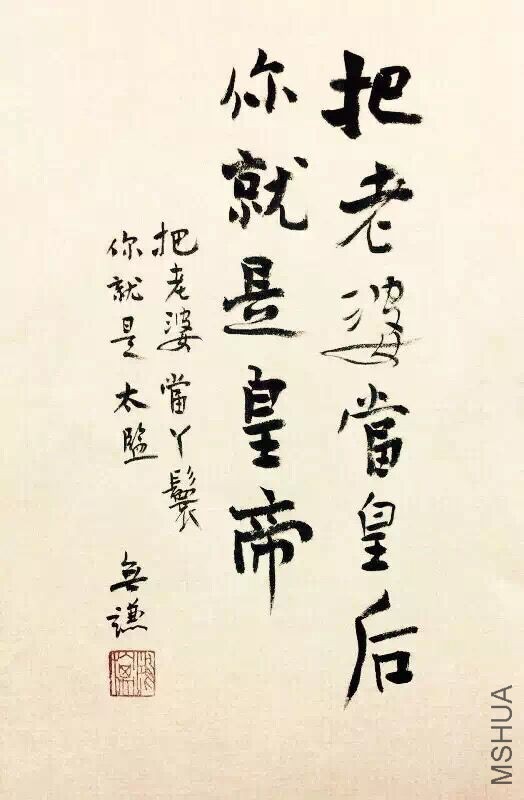 把老婆當皇后
你就是皇帝
把老婆當丫鬟
你就是太監
無謙
MSHUA